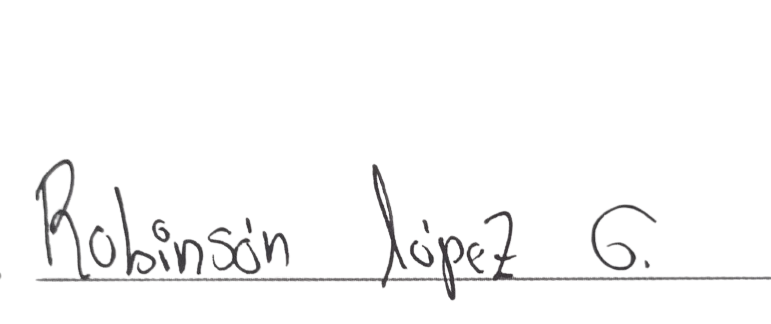 Robinsón López G.